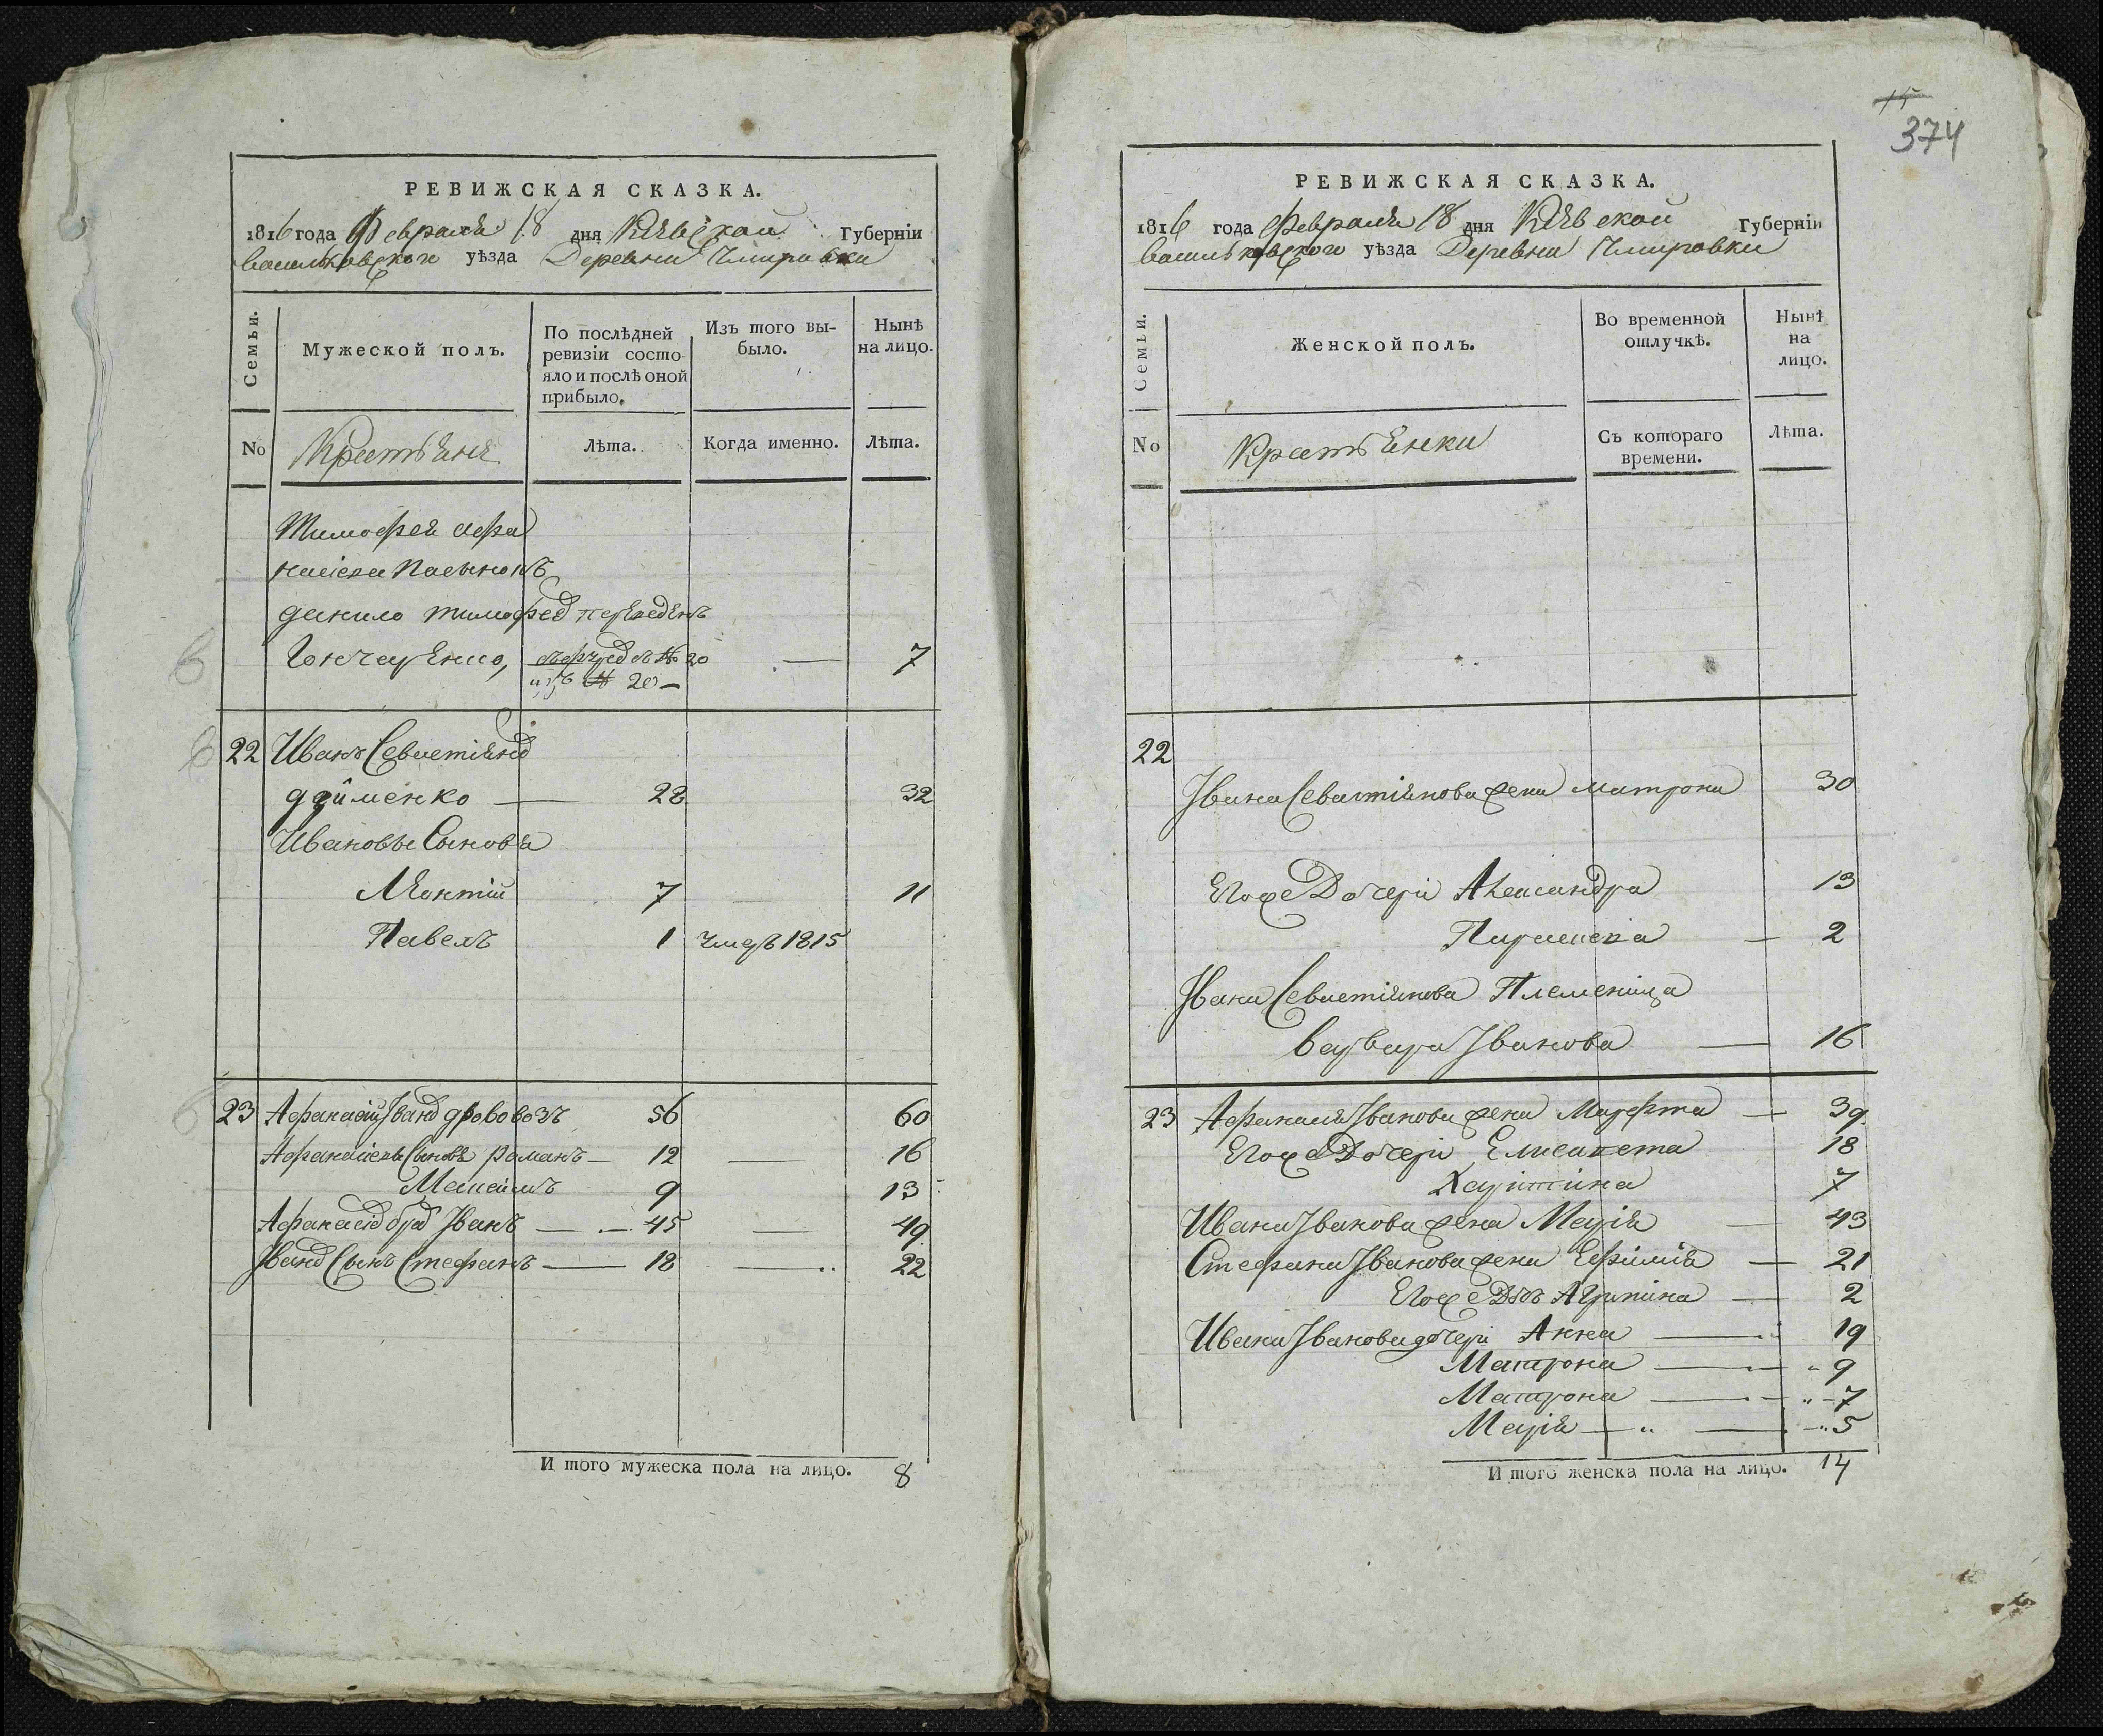 РЕВИЖСКАЯ СКАЗКА.
1816 года Февраля 18 дня Кіевской Губерніи
Васильковского уѣзда Деревни Чмировки
Семьи.
Мужеской полъ.
По послѣдней ревизіи состояло и послѣ оной прибыло.
Изъ того выбыло.
Нынѣ на лицо.
No
Крестьяне
Лѣта.
Когда именно.
Лѣта.
Тимофей Афа
насіева Пасынокъ
данило тимофеев переведенъ
Гончаренко, 20 7
изъ № 20 —
22 Иванъ Севастіянов
дейменко — 28 32
Ивановы Сыновя
Леонтій 7 — 11
Павелъ 1 умеръ 1815
23 Афанасій Іванов дрововозъ 56 60
Афанасіевы Сыновѣ Романъ — 12 — 16
Максимъ 9 13
Афанасіев брат Іванъ — 45 — 49
Іванов Сынъ Стефанъ — 18 — 22
И того мужеска пола на лицо. 8
15
374
РЕВИЖСКАЯ СКАЗКА.
1816 года Февраля 18 дня Кіевской Губерніи
Васильковского уѣзда Деревни Чмировки
Семьи.
Женской полъ.
Во временной отлучкѣ.
Нынѣ на лицо.
No
Крестьянки
Съ котораго времени.
Лѣта.
22
Івана Севастіянова жена матрона 30
Егоже Дочери Александра 13
Параскева — 2
Івана Севастіянова Племеница
Варвара Іванова — 16
23 Афанасія Іванова жена Марфта — 39
Егоже Дочери Елисавета 18
Харитина 7
Ивана Іванова жена Марія — 43
Стефана Іванова жена Ефимія — 21
Егоже Дочь Агрипина — 2
Ивана Іванова дочери Анна — 19
Матрона — 9
Матрона — 7
Марія — 5
И того женска пола на лицо. 14